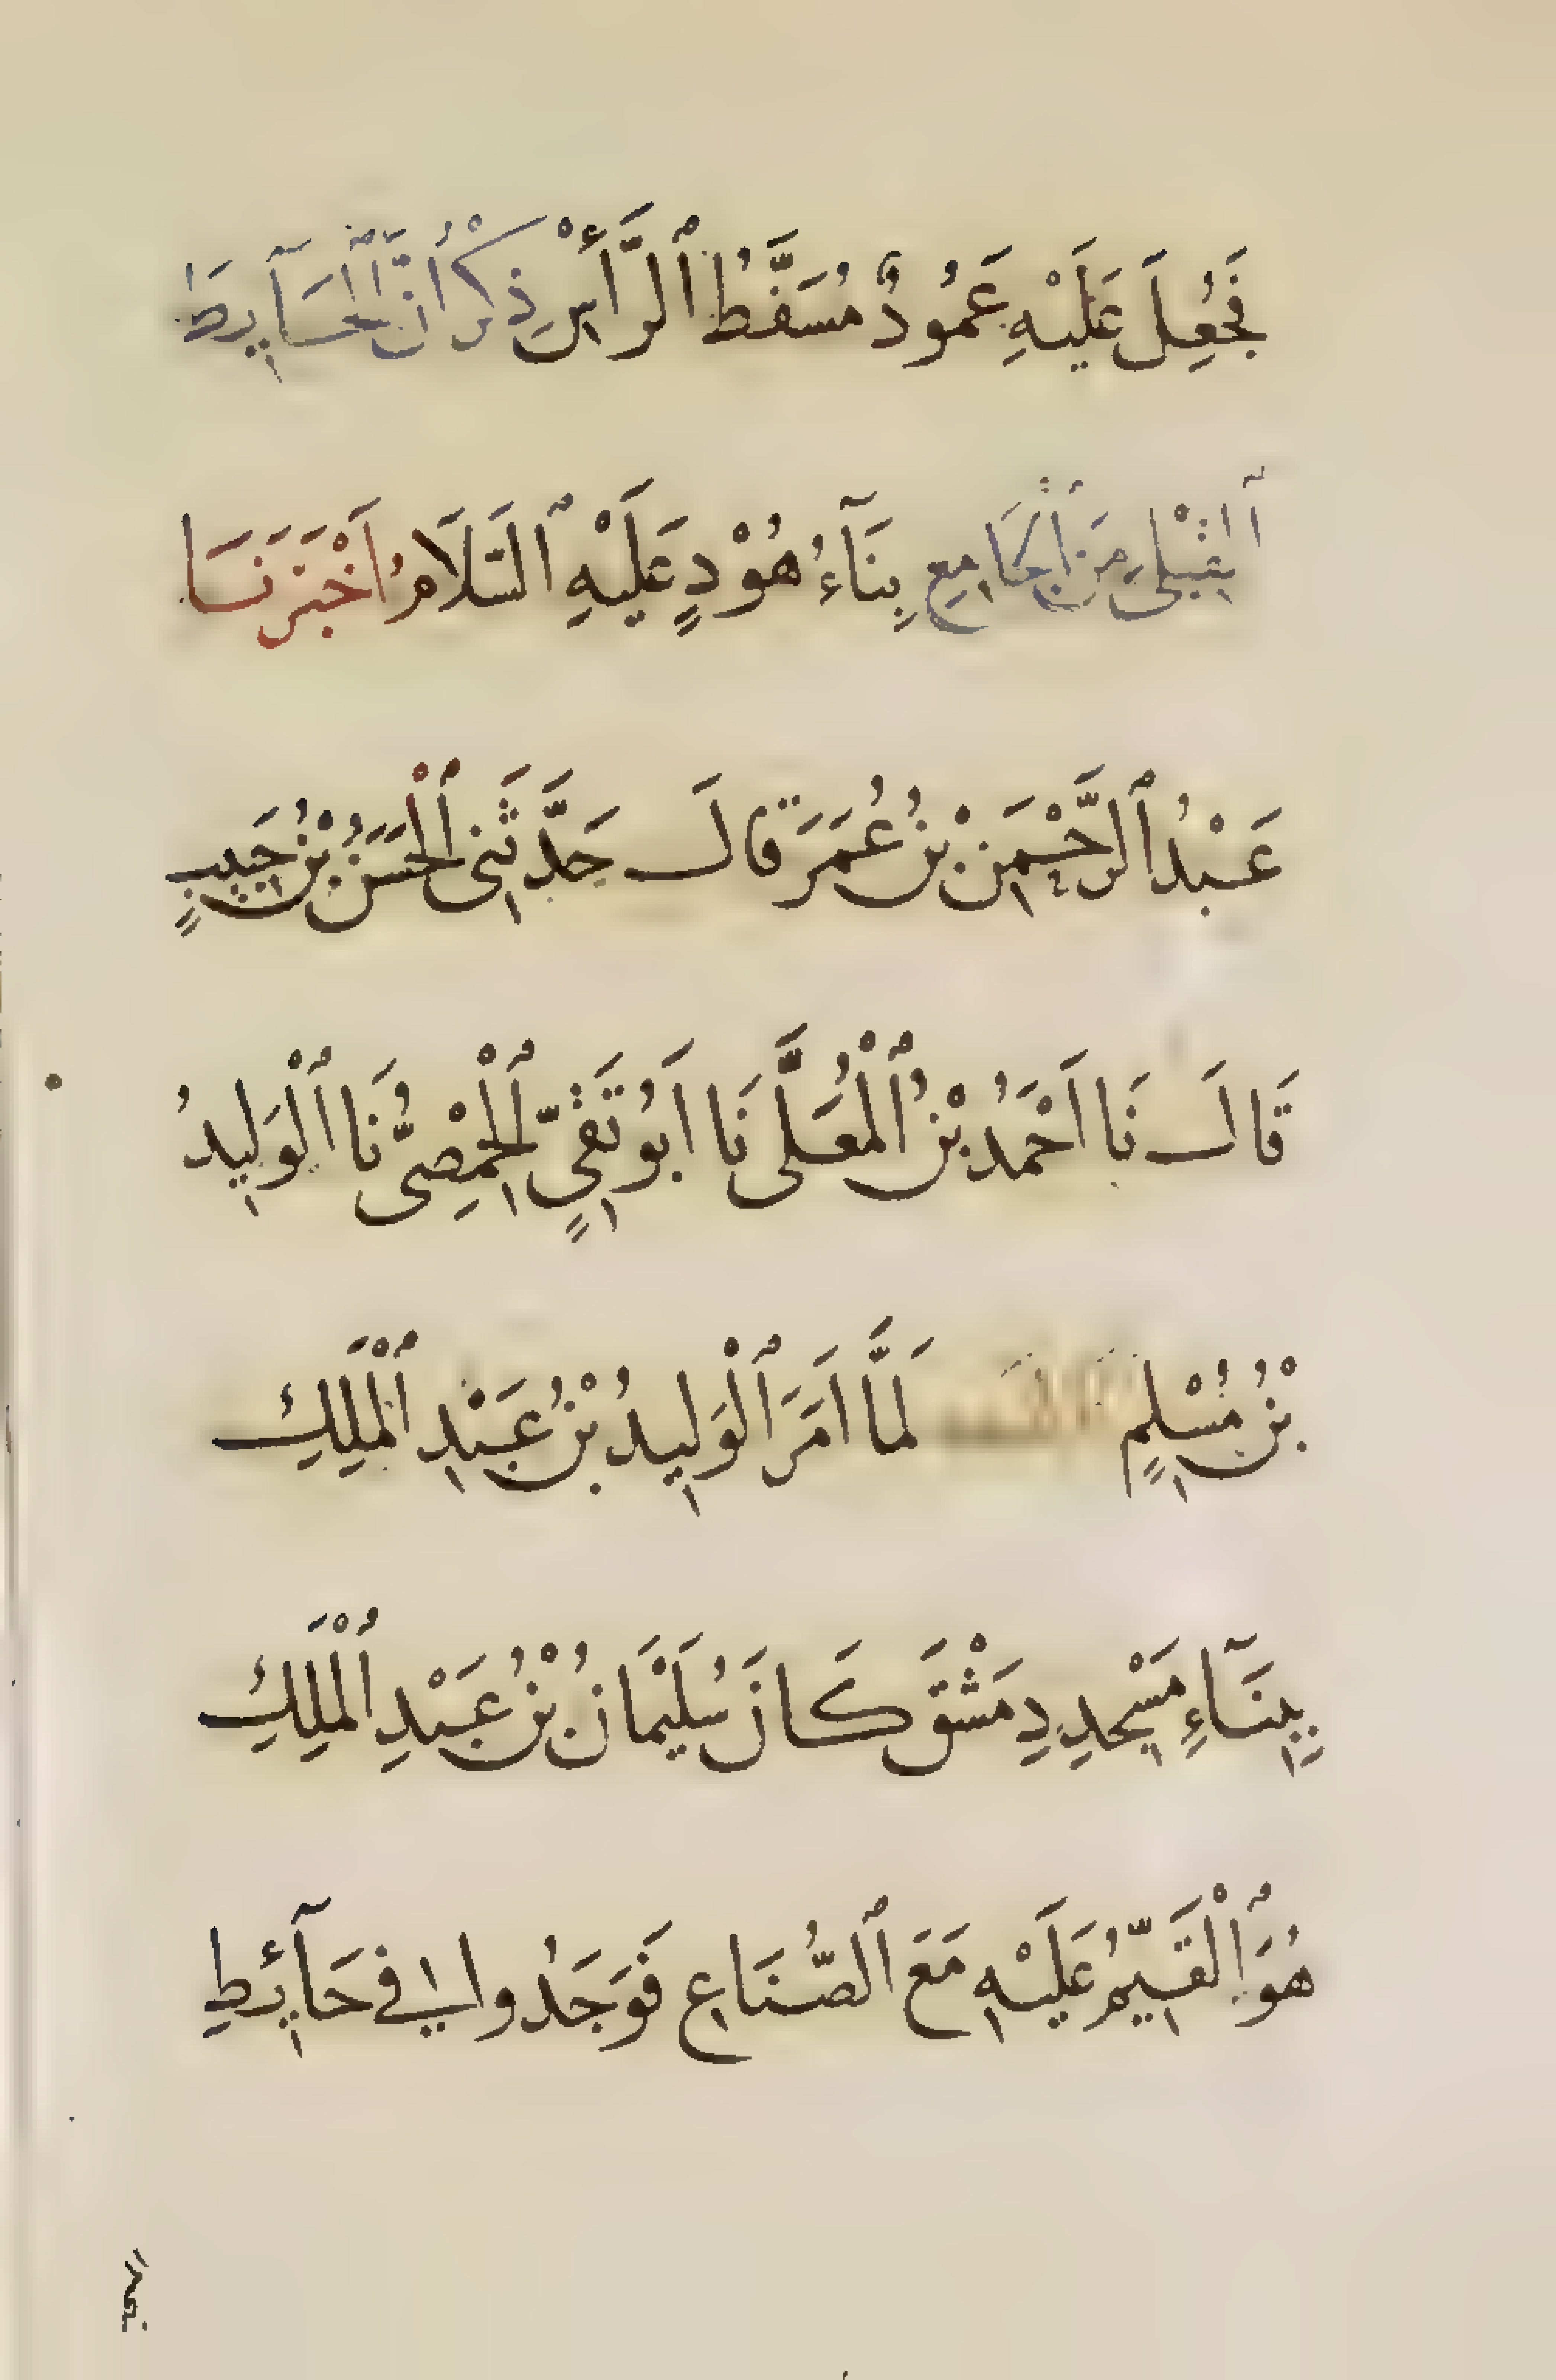 فَجُعِلَ عَلَيْهِ عَمُودٌ مُسَفَّطُ ٱلرَّأْسِ ذِكْرُ أَنَّ ٱلْحَآيِطَ
ٱلْقِبْلِي مِنَ ٱلْجَامِعِ بِنَآءُ هُوْدٍ عَلَيْهِ ٱلسَّلَامُ اَخْبَرَنَا
عَبْدُ ٱلرَّحْمَنِ بْنُ عُمَرَ قَالَ حَدَّثَنِي ٱلْحَسَنُ بْنُ حَبِيبٍ
قَالَ نَا اَحْمَدُ بْنُ ٱلْمُعَلَّى نَا اَبُو تَقِيٍّ ٱلْحِمْصِيُّ نَا ٱلْوَلِيدُ
بْنُ مُسْلِمٍ لَمَّا اَمَرَ ٱلْوَلِيدُ بْنُ عَبْدِ ٱلْمَلِكِ
بِبِنَآءِ مَسْجِدِ دِمَشْقَ كَانَ سُلَيْمَانُ بْنُ عَبْدِ ٱلْمَلِكِ
هُوَ ٱلْقَيِّمُ عَلَيْهِ مَعَ ٱلصُّنَاعِ فَوَجَدُوا فِي حَآئِطِ